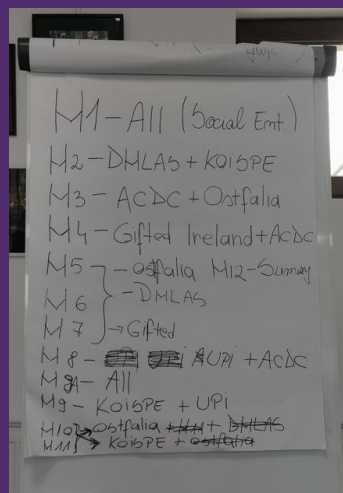 M1 - All (Social Ent.)
M2 - DMLAS + KOISPE
M3 - ACDC + Ostfalia
M4 - Gifted Ireland + ACDC
M5 - Ostfalia M12 - Sumay
M6 - DMLAS
M7 → Gifted
M8 - UPi + ACDC
M9A - All
M9 - KOISPE + UPi
M10 → Ostfalia + DMLAS
M11 → KOISPE + Ostfalia